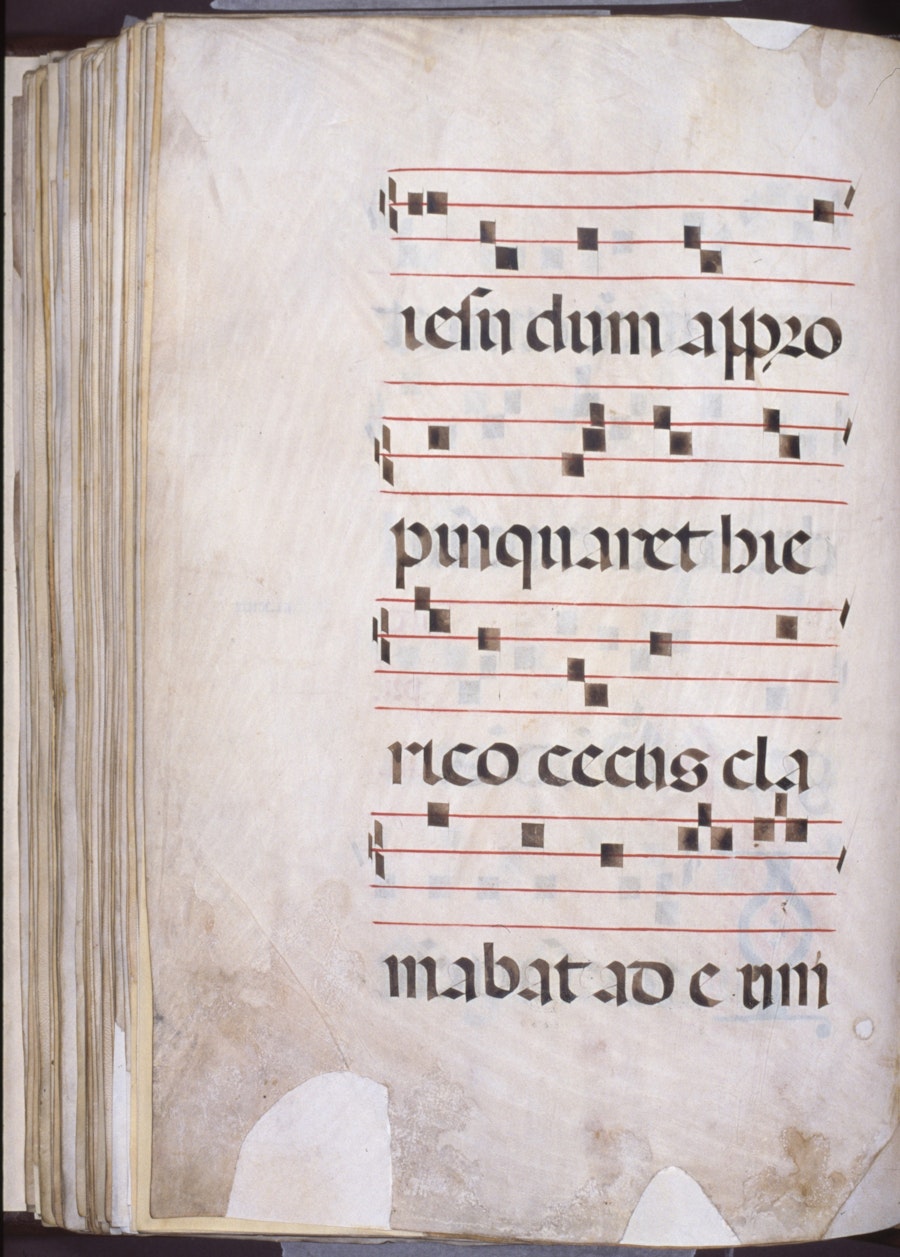 iesu dum appro
pinquaret hie
rico cecus cla
mabat ad e umi